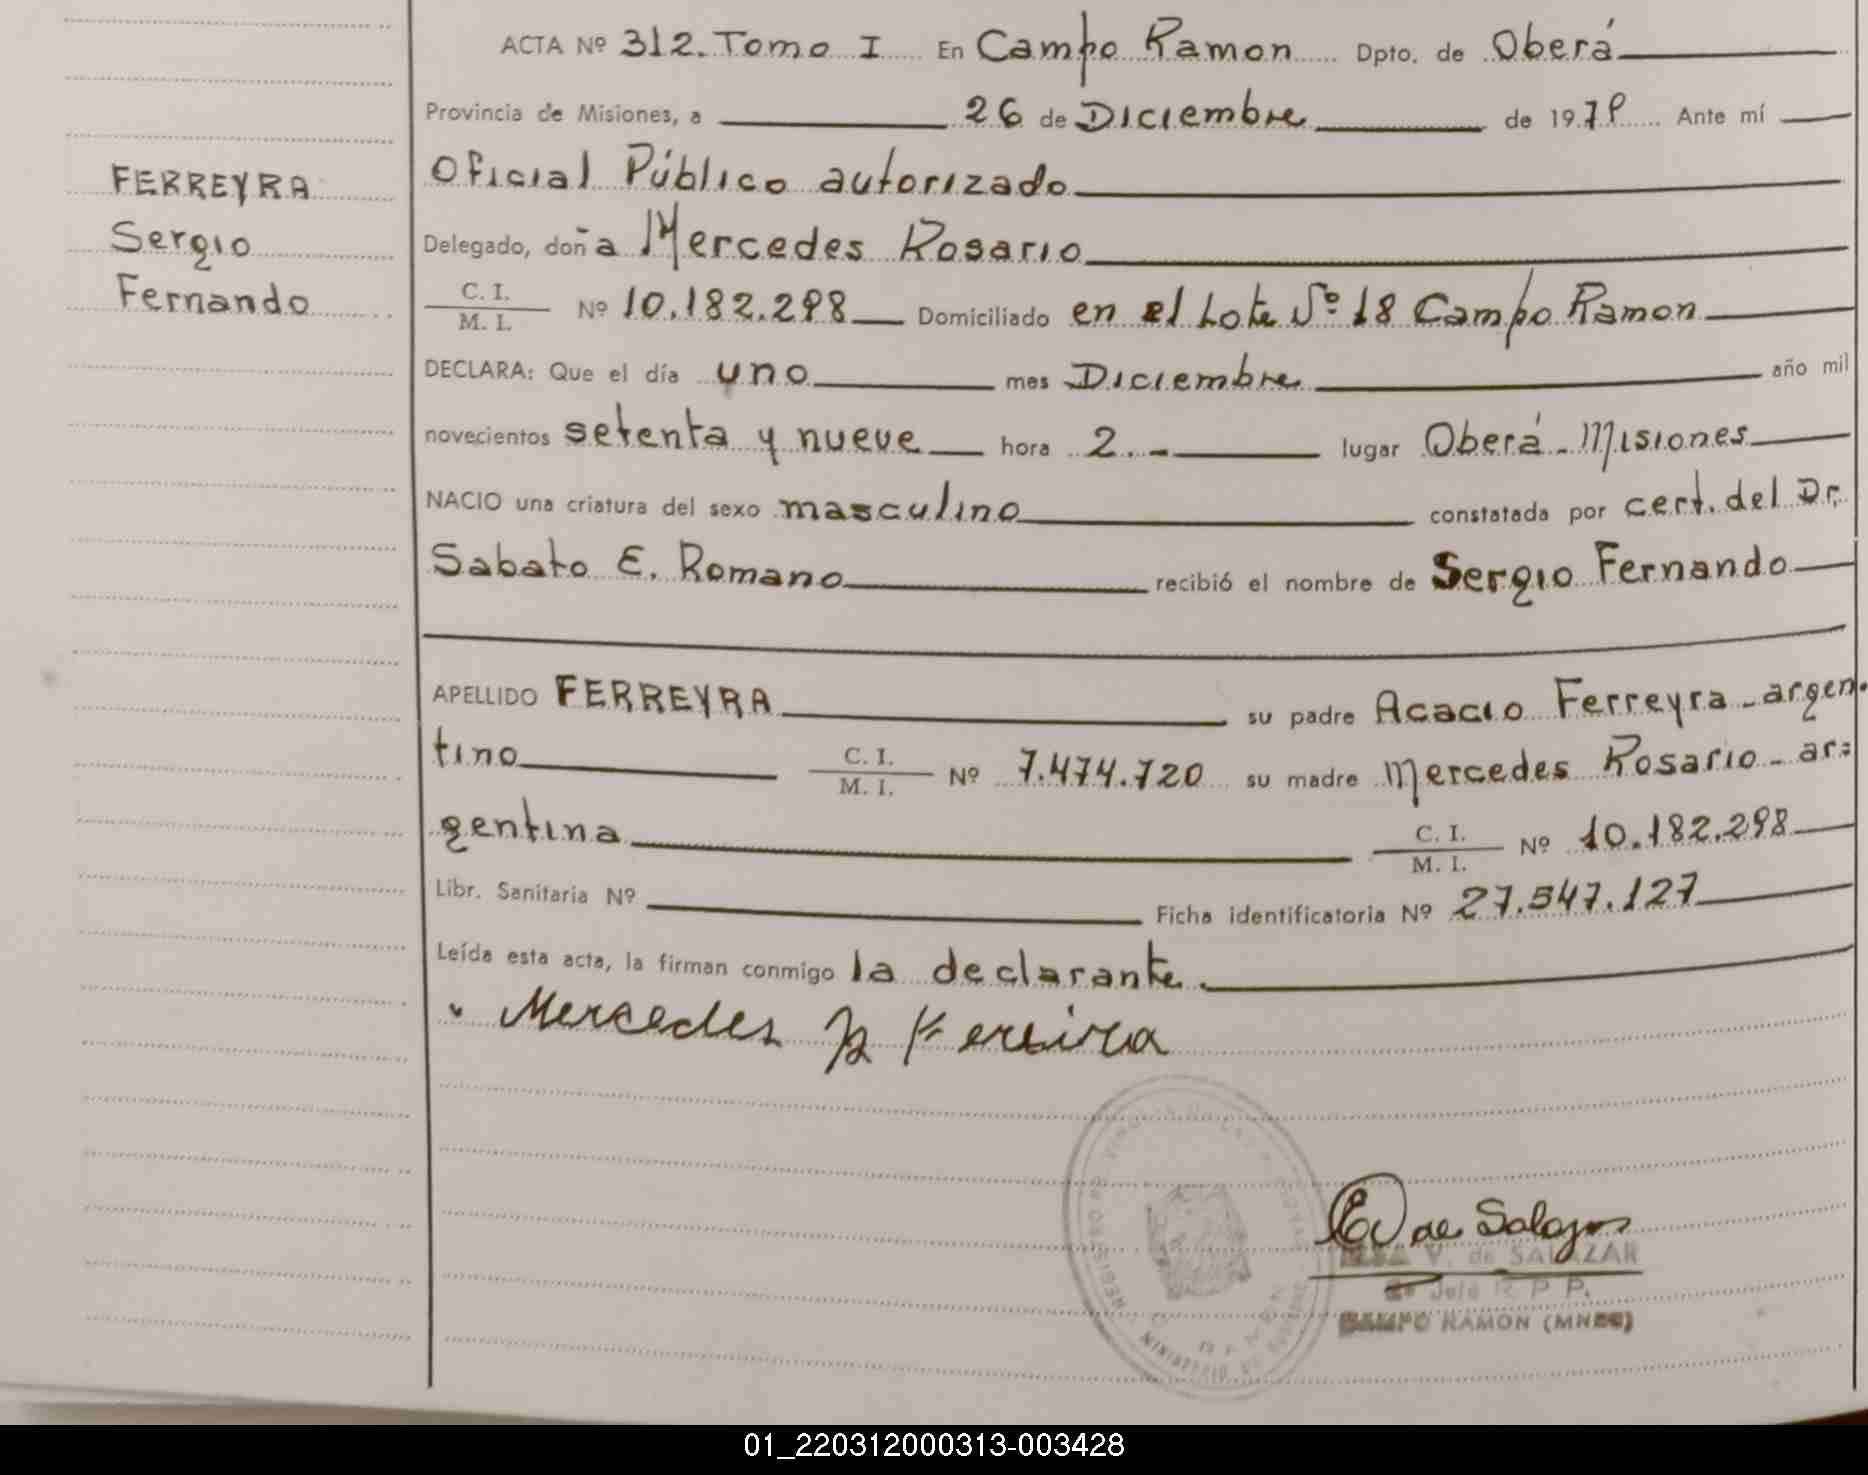 ACTA Nº 312. Tomo I En Campo Ramon Dpto. de Oberá
Provincia de Misiones, a 26 de Diciembre de 1979 Ante mí
Oficial Público autorizado
FERREYRA
Sergio
Fernando
Delegado, doña Mercedes Rosario
C. I.
M. I.
Nº 10.182.298 Domiciliado en el Lote Nº 18 Campo Ramon
DECLARA: Que el día uno mes Diciembre año mil
novecientos setenta y nueve hora 2. - lugar Oberá - Misiones
NACIO una criatura del sexo masculino constatada por cert. del Dr.
Sabato E. Romano recibió el nombre de Sergio Fernando
APELLIDO FERREYRA su padre Acacio Ferreyra - argen-
tino C. I. M. I. Nº 7.474.720 su madre Mercedes Rosario - ar=
gentina C. I. M. I. Nº 10.182.298
Libr. Sanitaria Nº Ficha identificatoria Nº 27.547.127
Leída esta acta, la firman conmigo la declarante.
Mercedes R Ferreira
de Salazar
V. de SALAZAR
R P P.
CAMPO RAMON (MNES)
MINISTERIO DE
01_220312000313-003428